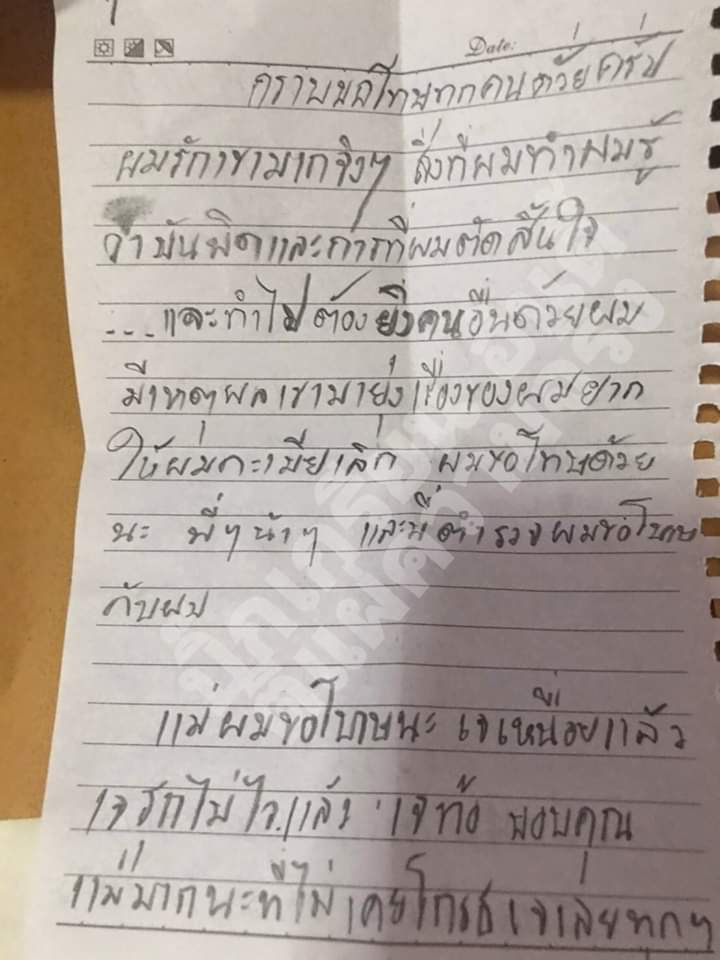 Date:
กราบขอโทษทุกคนด้วยครับ
ผมรักเขามากจิงๆ สิ่งที่ผมทำผมรู้
ว่ามันผิดและการที่ผมตัดสิ้นใจ
...และทำไปต้องยิงคนอื่นด้วยผม
มีเหตุผลเขามายุ่งเรื่องของผมยาก
ให้ผมกะเมียเลิก ผมขอโทษด้วย
นะ พี่ๆน้าๆ และพี่ตำรวจผมขอโทษ
กับผม
แม่ผมขอโทษนะ เจเหนื่อยแล้ว
เจรักไม่ไวแล้ว เจท้อ ขอบคุณ
แม่มากนะที่ไม่เคยโกรธเจเลยทุกๆ